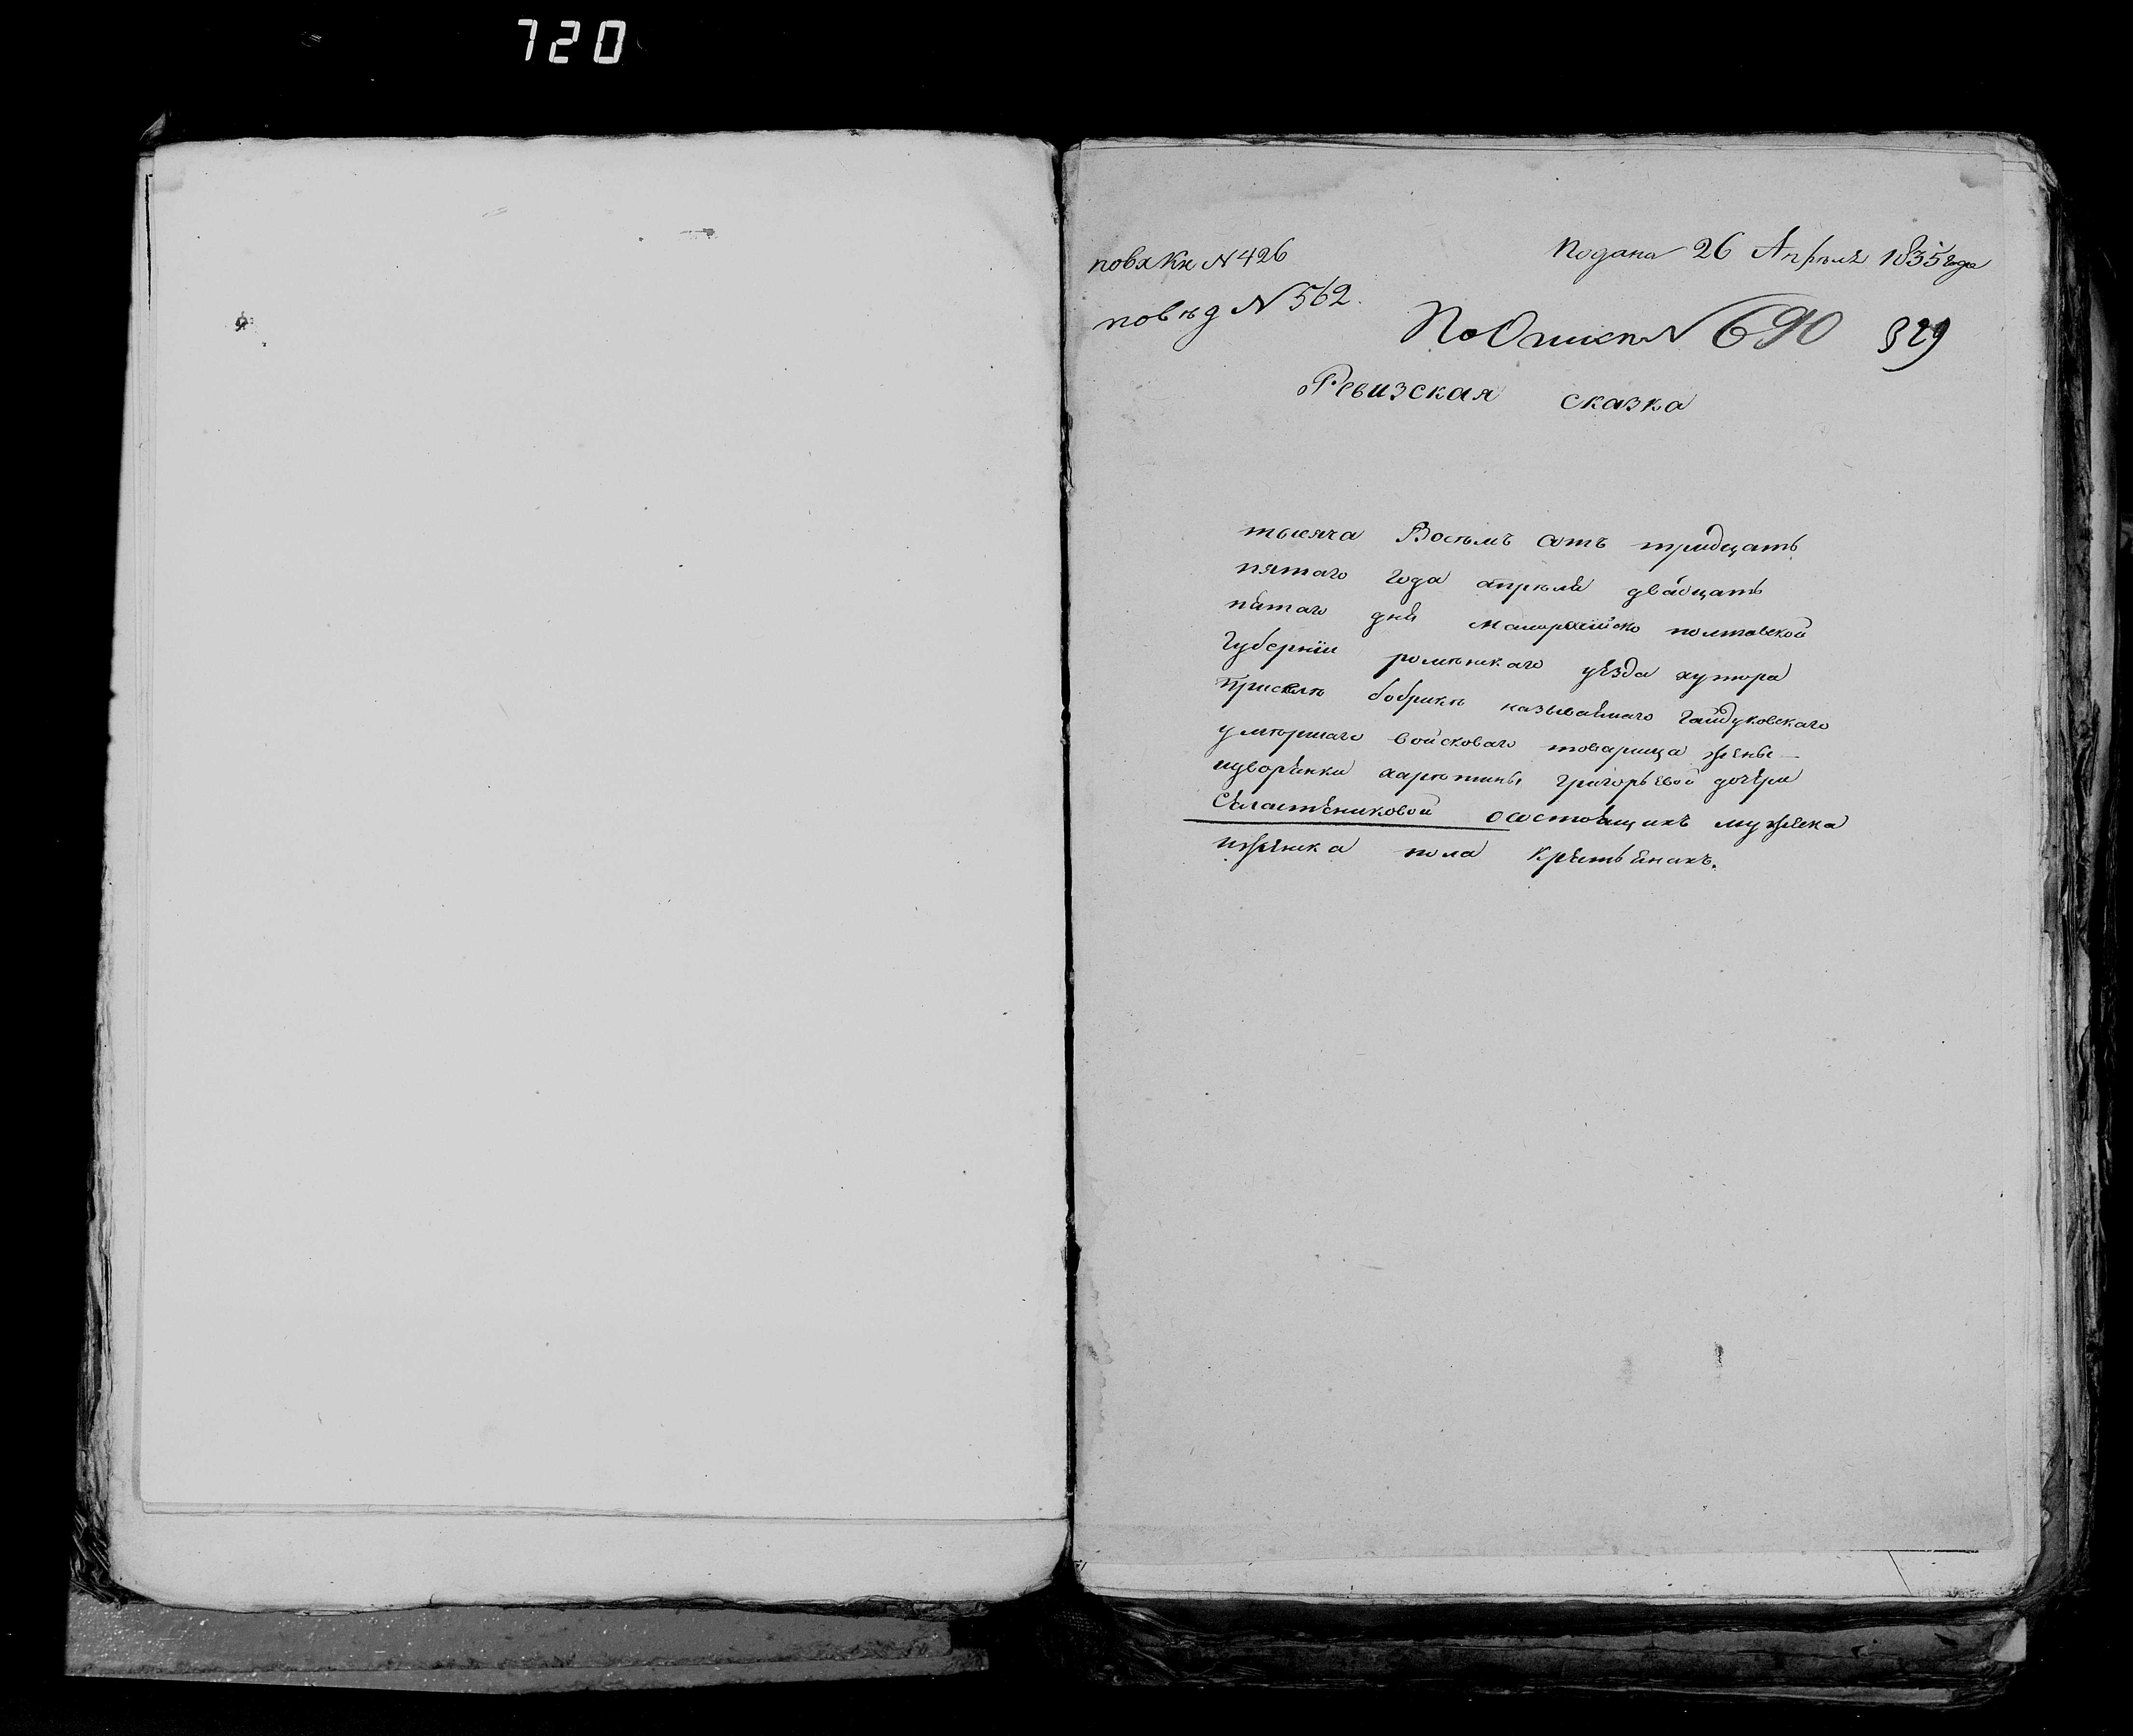 720
подана 26 Апреля 1835 года
по вх Кн N 426
по вѣд N 562.
По Описи N 690 829
Ревизская сказка
тысяча Восемъ сотъ тридцать
пятаго года апреля двадцать
пятаго дня малоросiйско полтавской
Губернiи роменскаго уѣзда хутора
при селе бобрике называемаго Гайдуковскаго
умершаго войсковаго товарища жены
идворянки харитины григорьевой дочери
осостоящихъ мужеска
иженска пола крестьянахъ.